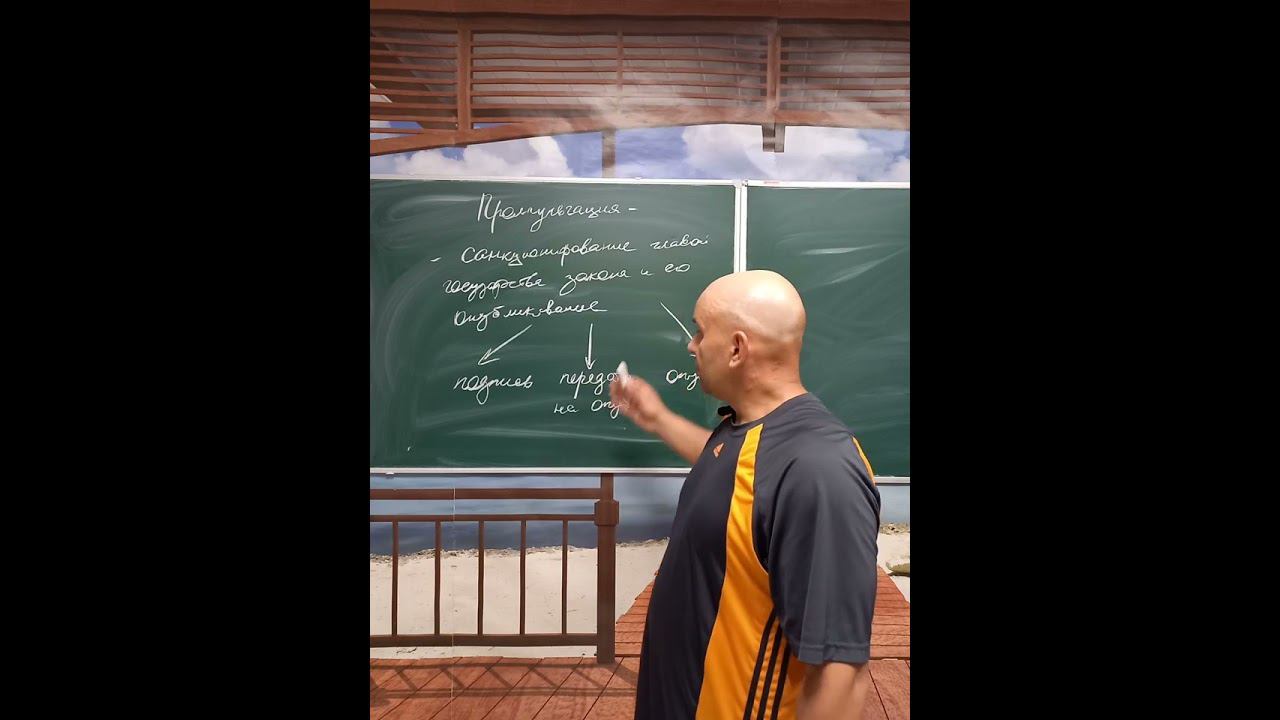 Промульгация -
- Санкционирование главой
государства закона и его
опубликование
подпись передать опу
на опу